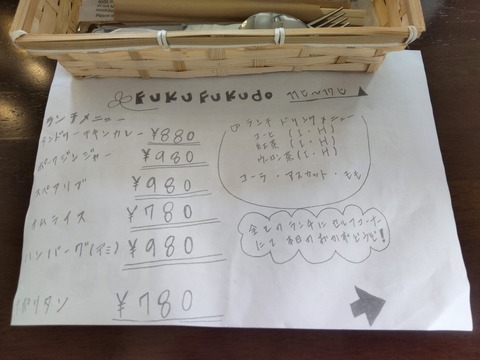 FUKUFUKUdo
ランチメニュー
タンドリーチキンカレー ¥880
ポークジンジャー ¥980
スペアリブ ¥980
オムライス ¥780
ハンバーグ(デミ) ¥980
ポリタン ¥780
ランチ ドリンクメニュー
コーヒ (I・H)
紅茶 (I・H)
ウーロン茶 (I・H)
コーラ・マスカット・もも
全てのランチに
にて 本日のおかずどうぞ!